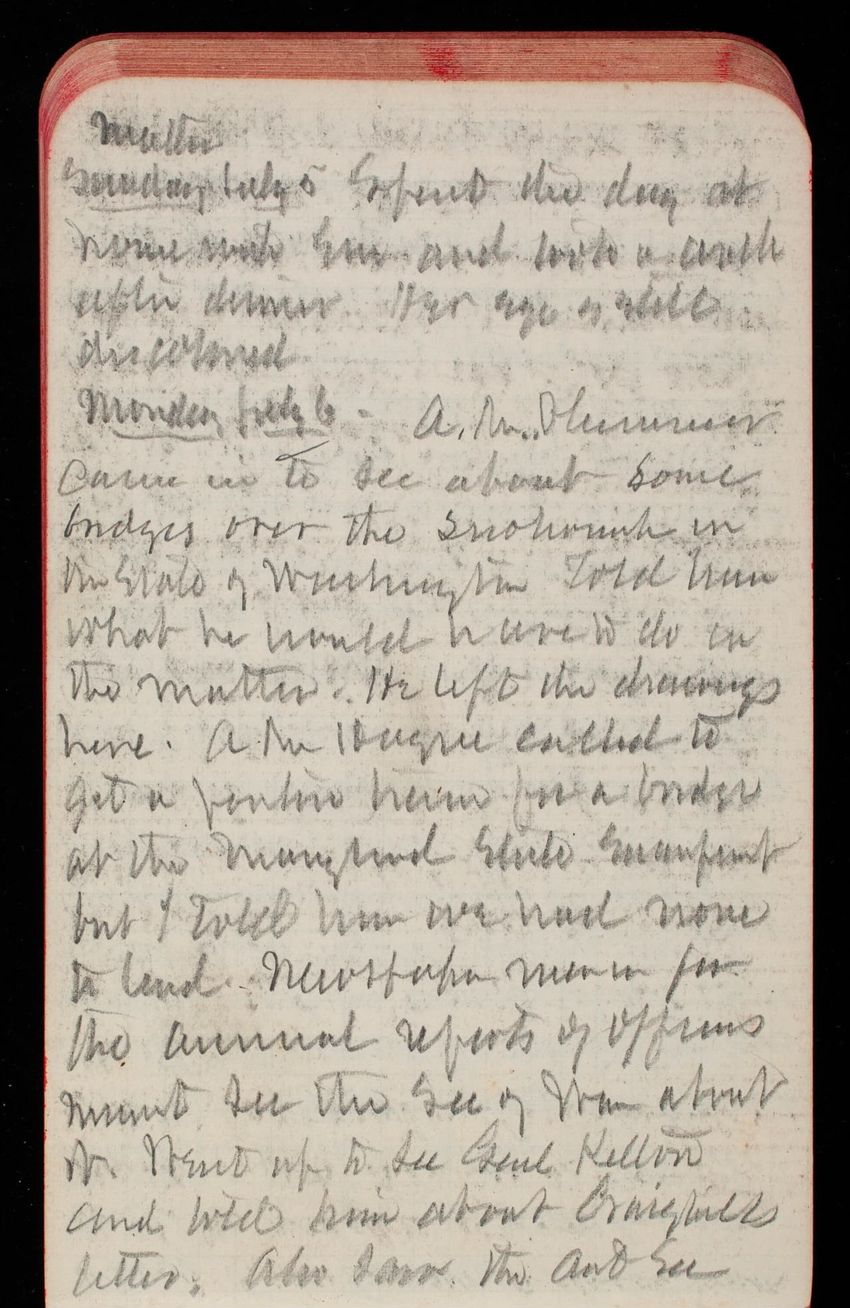 matter
Sunday July 5 Spent the day at
home with Em and took a walk
after dinner. Her eye is still
discolored
Monday July 6 - A. M. Plummer
came in to see about some
bridges over the Snohomish in
the State of Washington Told him
what he would have to do in
the matter. He left the drawings
here. A Mr called to
get a pontoon for a bridge
at the Maryland State Encampment
but I told him we had none
to lend. Newspaper men in for
the annual reports of officers
must see the Sec of War about
it. Went up to see Genl Kelton
and told him about Craighills
letter. Also saw the Asst Sec